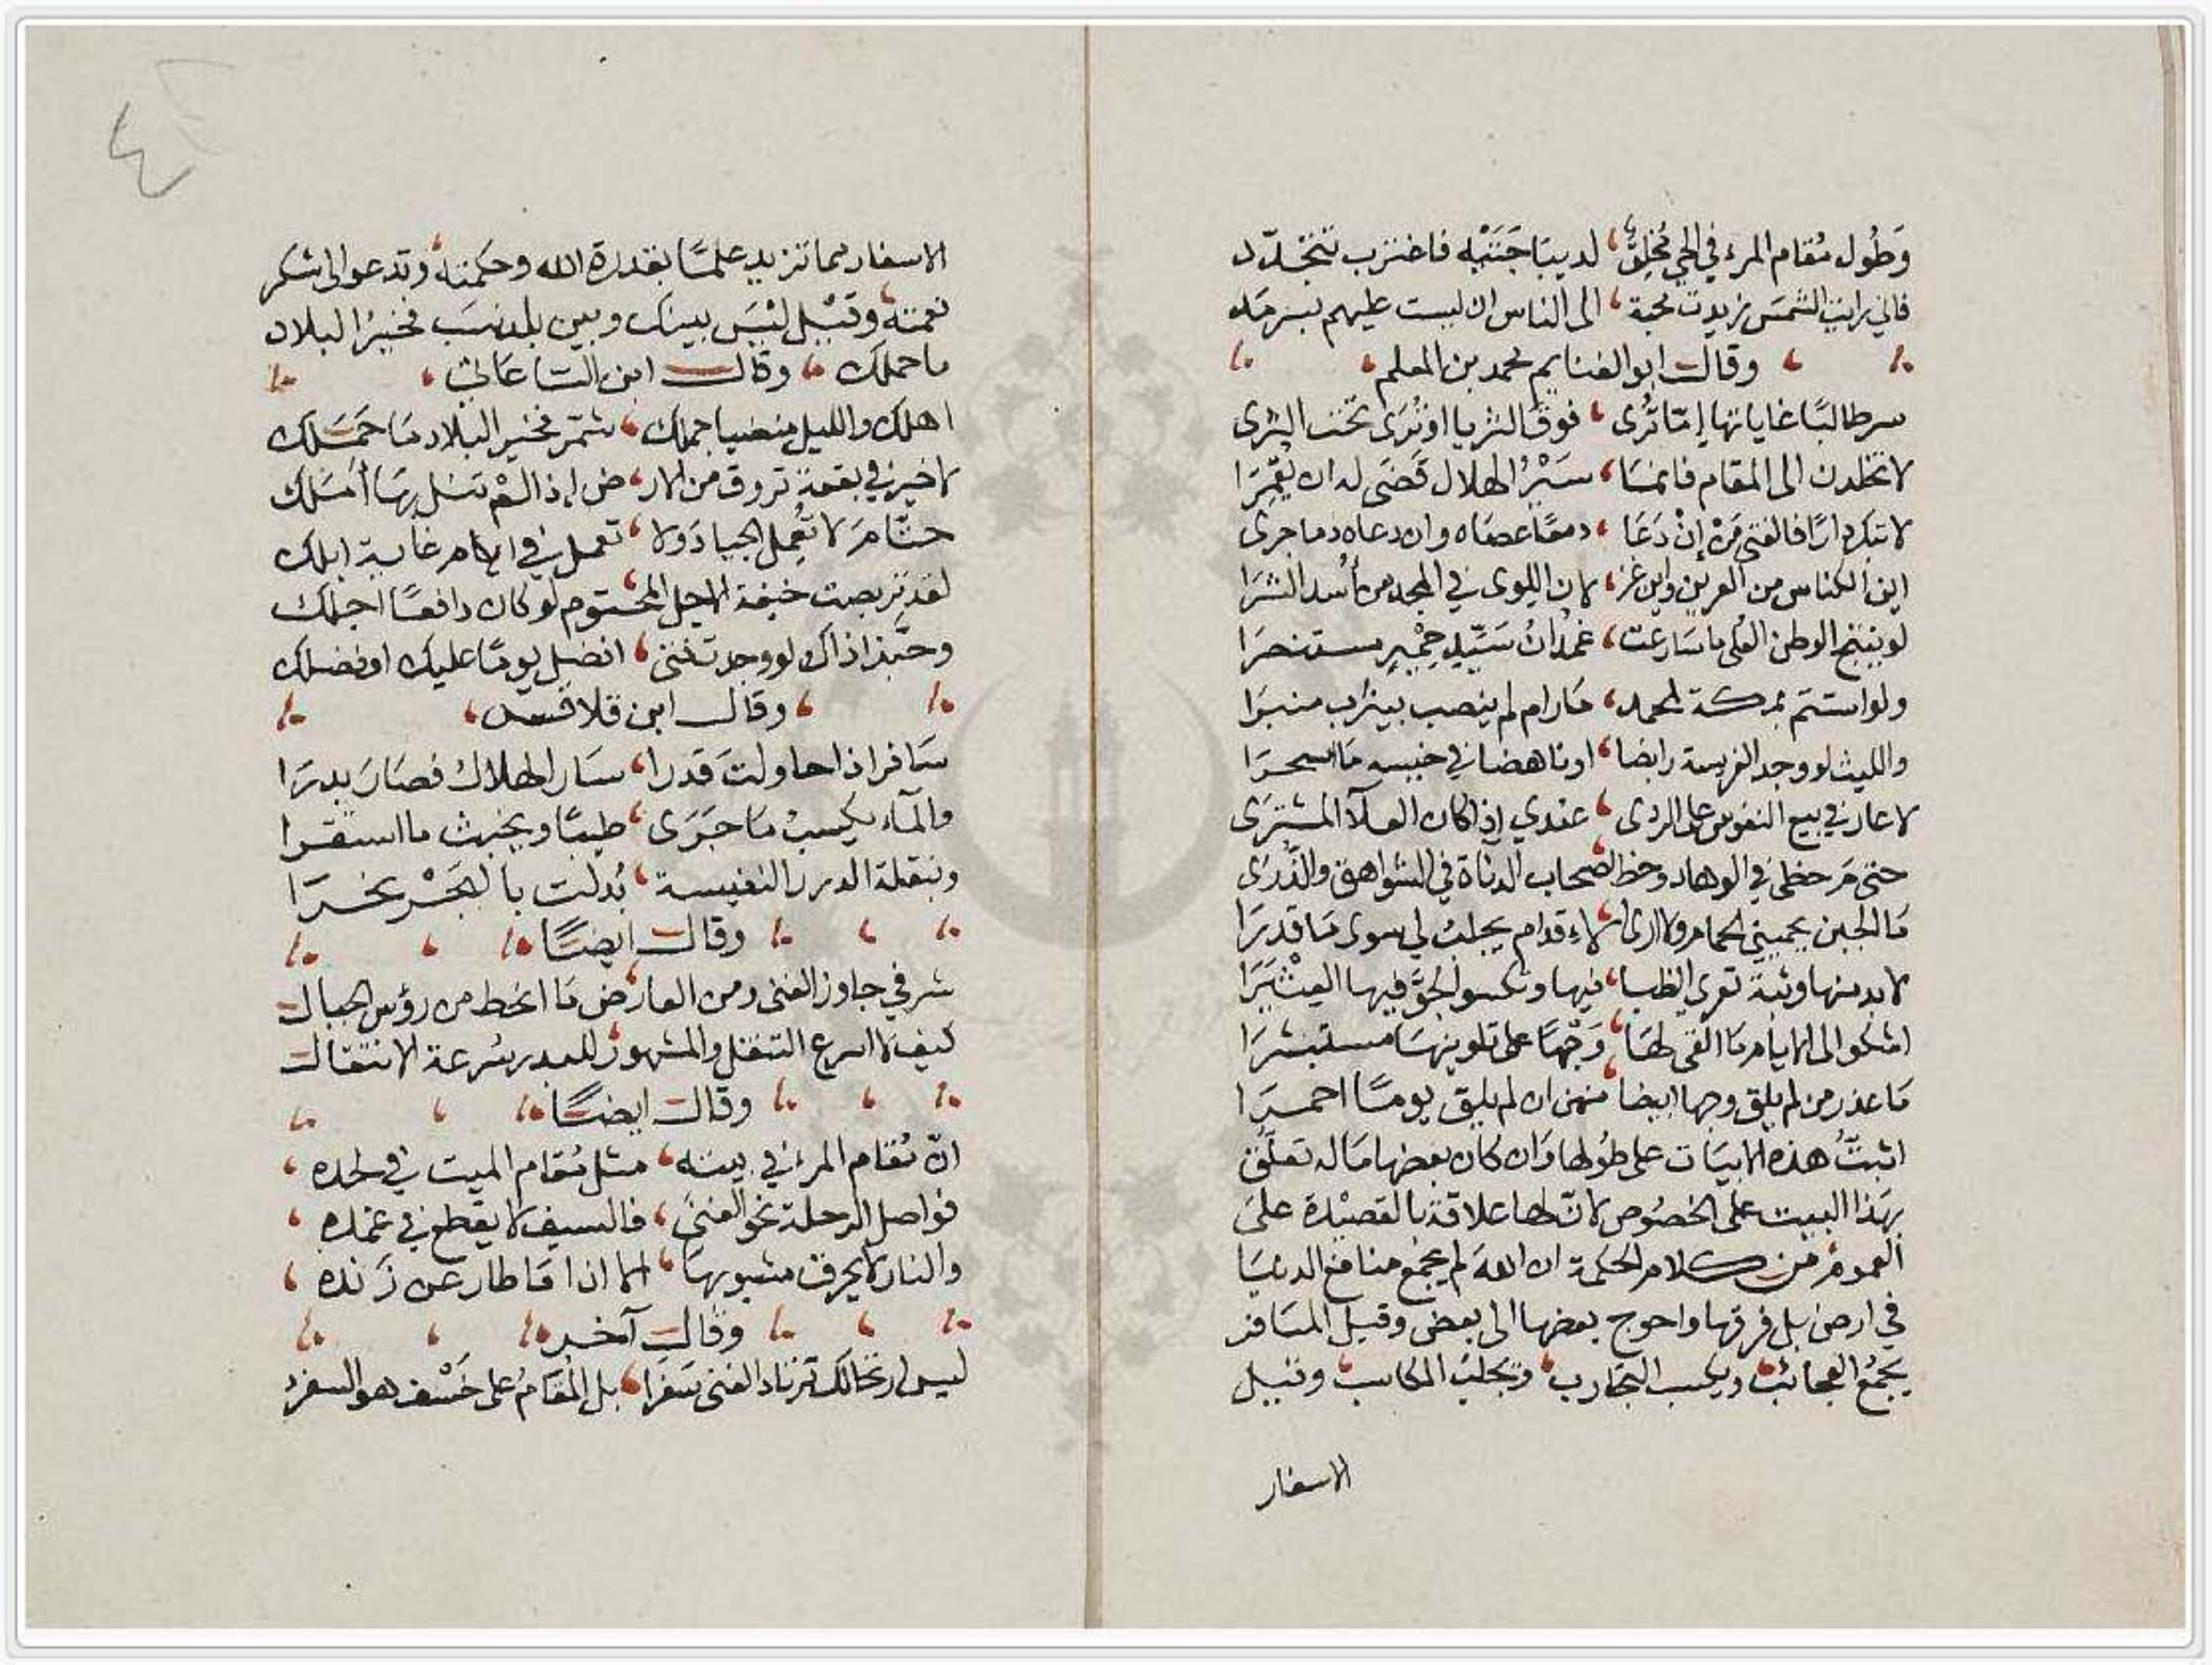 وَطُول مُقام المرء في الحي مُخلِقٌ ، لديباجَتَيْه فاغترب تتجدّد
فاني رايت الشمسَ زيدت محبة ، الى الناس ان ليست عليهم بسرمد
وقال ابو الغنايم محمد بن المعلم
سر طالبًا غاياتها إمّا تُرى ، فوق الثريا او تُرَى تحت الثرى
لا تخلدن الى المقام فانما ، سَيْرُ الهلال قَضَى له ان يُقمِرَا
لا تبك دارًا فالفتى مَنْ إنْ دَعَا ، دمعًا عصاه وان دعاه دما جرى
اين الكناس من العرين واين غز ، لان اللوى في المجد من أُسد الشرَا
لو ينتج الوطن العُلى ما سَارعت ، غمدان سَيّد حِمْيرٍ مستنصرَا
ولو استتم بمكة لمحمد ، مَا رام لم ينصب بيثرب منبرَا
والليث لو وجد الفريسة رابضا ، او ناهضا في خيسه مَا اسحرَا
لا عار في بيع النفوس على الردى ، عندي إذا كان العلآ المشترَى
حتى مَ حظى في الوهاد وحظ اصحاب الدناة في الشواهق والذُّرَى
مَا الجبن يحميني الحمام ولا ارى الاءقدام يجلبُ لي سوى مَا قدرَا
لا بد منها وثبة تعرى الظبا ، فيها وتكسو الجوَّ فيها العِثْيَرَا
اشكوا الى الايام مَا القى لهَا ، وَجْهًا على تلوينهَا مستبشرَا
مَا عذر من لم يلق وجها ابيضا ، منهن ان لم يلق يومًا احمرَا
اثبتُّ هذه الابيَات على طُولها وَان كان بعضها مَا له تعلّق
بهَذا البيت على الخصُوص لانّ لها علاقة بالقصيْدة علىَ
العموم من كلام الحكمة ان الله لم يجمع منافع الدنيَا
في ارض بل فرقها واحوج بعضها الى بعض وقيل المسَافر
يجمَعُ العجائبَ ويكسب التجارب ، وَيجلبُ المكاسب ، وقيل
الاسفار
الاسفار مما تزيد علمًا بقدرة الله وحكمته ، وتدعو الى شكر
نعمته ، وقيْل ليْسَ بينك وبين بلد نسَب فخيرُ البلاد
ما حملك ، وقال ابن الساعاتي
اهلك والليل منضيا جملك ، شمّر فخير البلاد مَا حَمَلك
لا خير في بقعة تروق من الار ، ض إذا لمْ تنل بهَا أمَلك
حتّامَ لا تُعمل الجيادَ ولا ، تعمل في الهام غابة ابلك
لقد تربصت خيفة الاجل المحتوم لو كان دافعًا اجلك
وحبّذا ذاك لو وجدت فتى ، افضل يومًا عليك او فضلك
وقال ابن قلاقس
سَافر اذا حاولتَ قدرا ، سَار الهلالُ فصَارَ بدرَا
والمآء يكسبْ مَا جَرَى ، طيبًا ويخبث ما استقرا
وبنقلة الدرر النفيسة ، بُدلت بالبَحْر نحرَا
وقال ايضًا
شرفي جاوز الغنى ومن العارض مَا انحط من رؤس الجبال
كيف لا اسرع التنقل والمشهور للبدر سُرعة الانتقال
وقال ايضًا
انّ مُقام المرء في بيته ، مثل مُقام الميت في لحده ،
فواصل الرحلة نحو الغنىً ، فالسيف لا يقطع في غمده ،
والنار لا يحرق مشبوبهَا ، الا اذا مَا طار عن زَنده ،
وقال آخر
ليس ارتحالك ترتاد الغنى سَفَرَا ، بل المُقامُ على خَسْف هو السفرُ